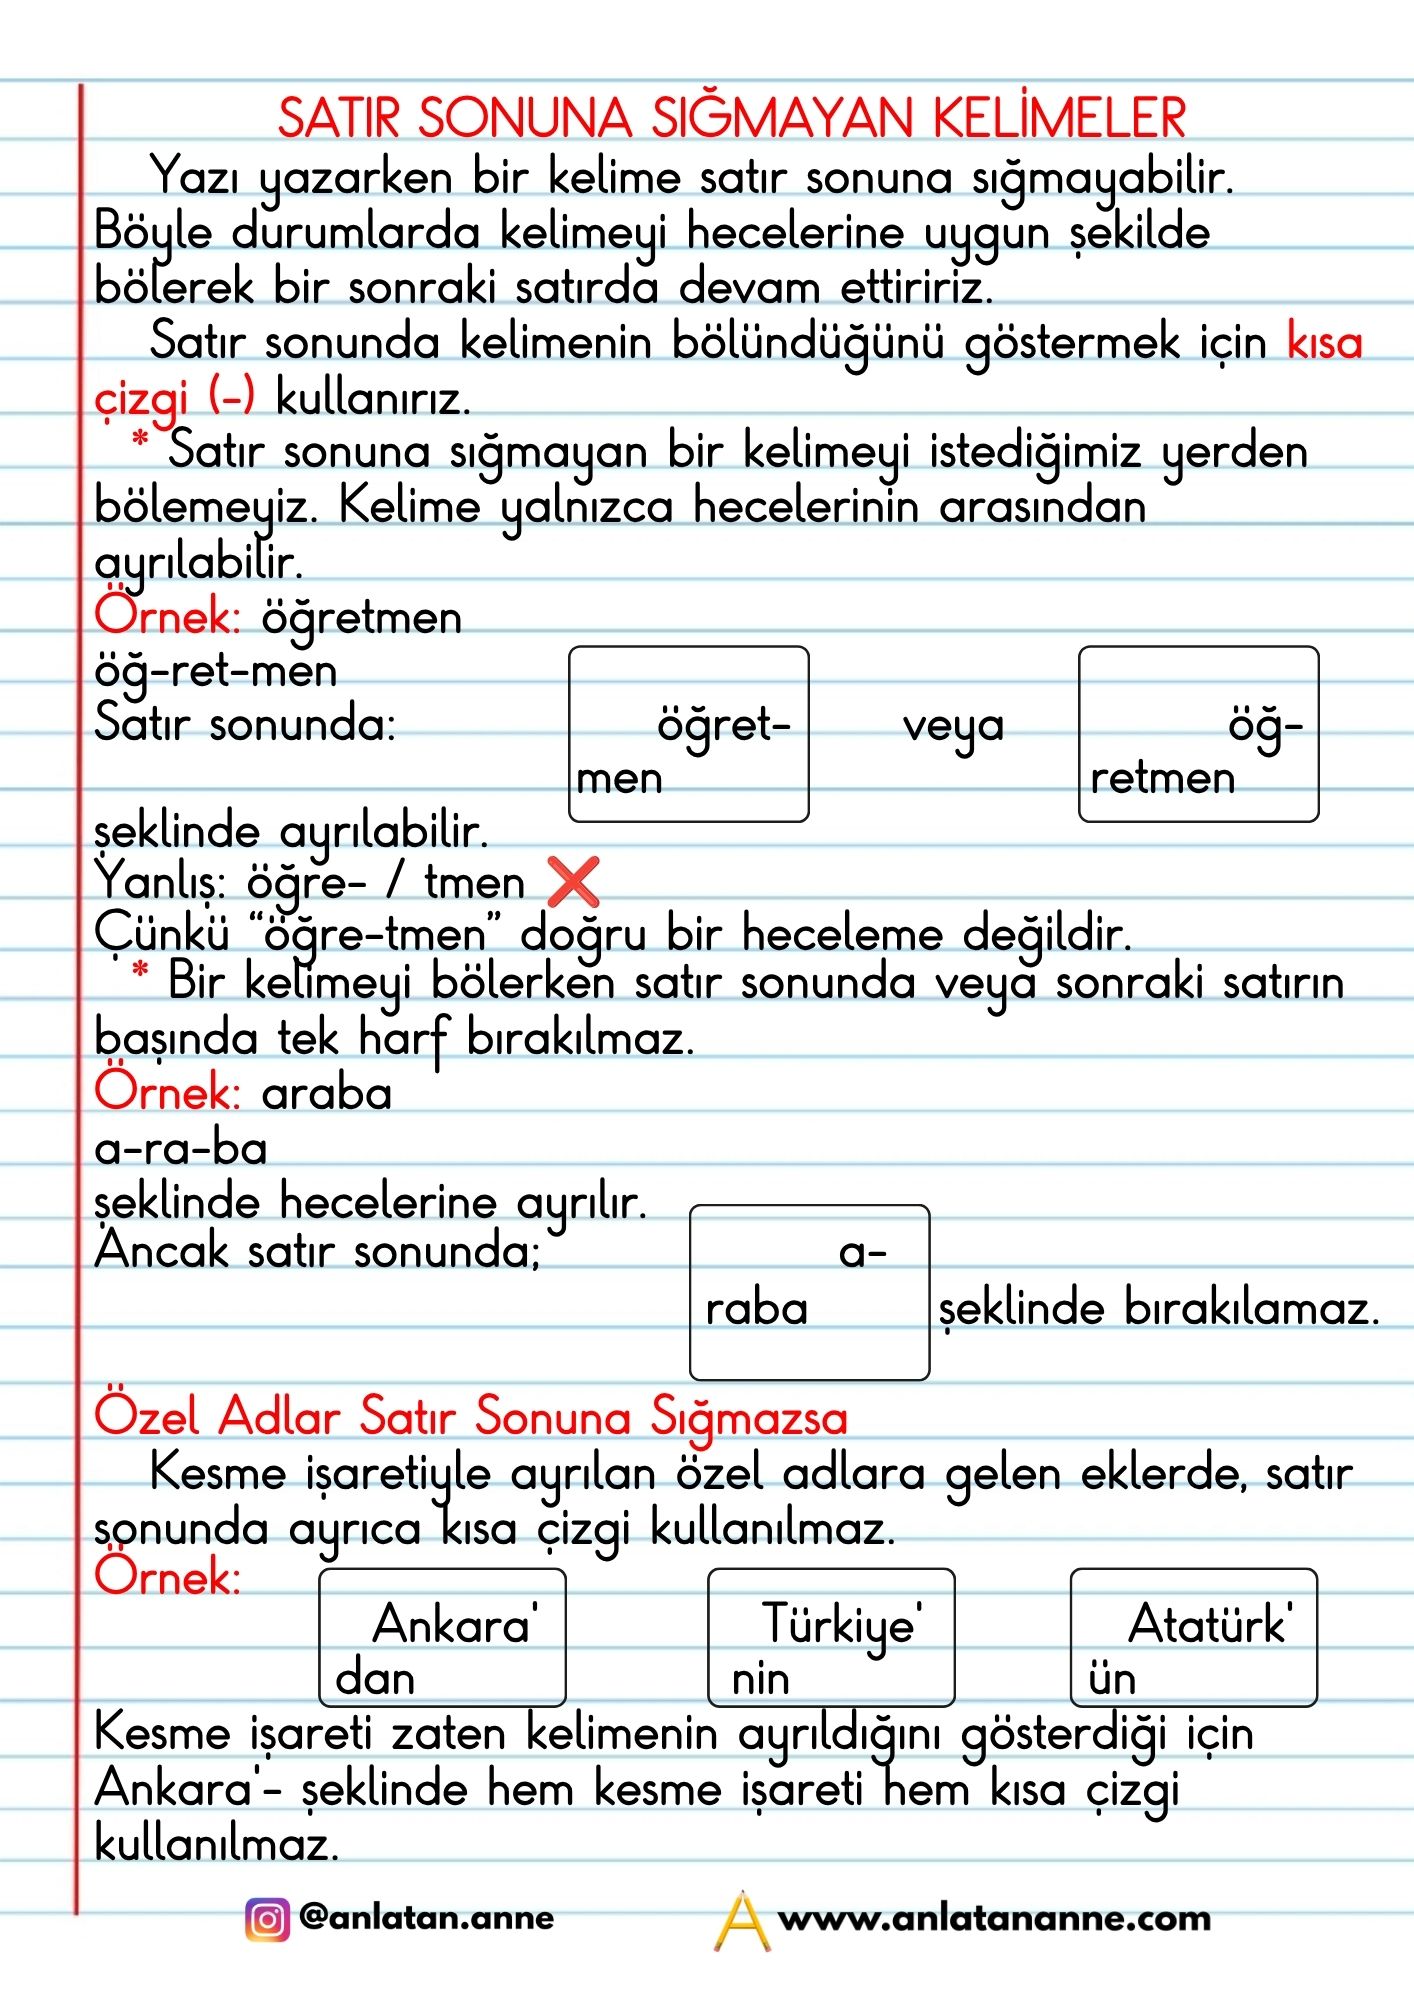 SATIR SONUNA SIĞMAYAN KELİMELER
Yazı yazarken bir kelime satır sonuna sığmayabilir.
Böyle durumlarda kelimeyi hecelerine uygun şekilde
bölerek bir sonraki satırda devam ettiririz.
Satır sonunda kelimenin bölündüğünü göstermek için kısa
çizgi (-) kullanırız.
* Satır sonuna sığmayan bir kelimeyi istediğimiz yerden
bölemeyiz. Kelime yalnızca hecelerinin arasından
ayrılabilir.
Örnek: öğretmen
öğ-ret-men
Satır sonunda: öğret- veya öğ-
men retmen
şeklinde ayrılabilir.
Yanlış: öğre- / tmen ❌
Çünkü “öğre-tmen” doğru bir heceleme değildir.
* Bir kelimeyi bölerken satır sonunda veya sonraki satırın
başında tek harf bırakılmaz.
Örnek: araba
a-ra-ba
şeklinde hecelerine ayrılır.
Ancak satır sonunda; a-
raba şeklinde bırakılamaz.
Özel Adlar Satır Sonuna Sığmazsa
Kesme işaretiyle ayrılan özel adlara gelen eklerde, satır
sonunda ayrıca kısa çizgi kullanılmaz.
Örnek:
Ankara' Türkiye' Atatürk'
dan nin ün
Kesme işareti zaten kelimenin ayrıldığını gösterdiği için
Ankara'- şeklinde hem kesme işareti hem kısa çizgi
kullanılmaz.
@anlatan.anne www.anlatananne.com